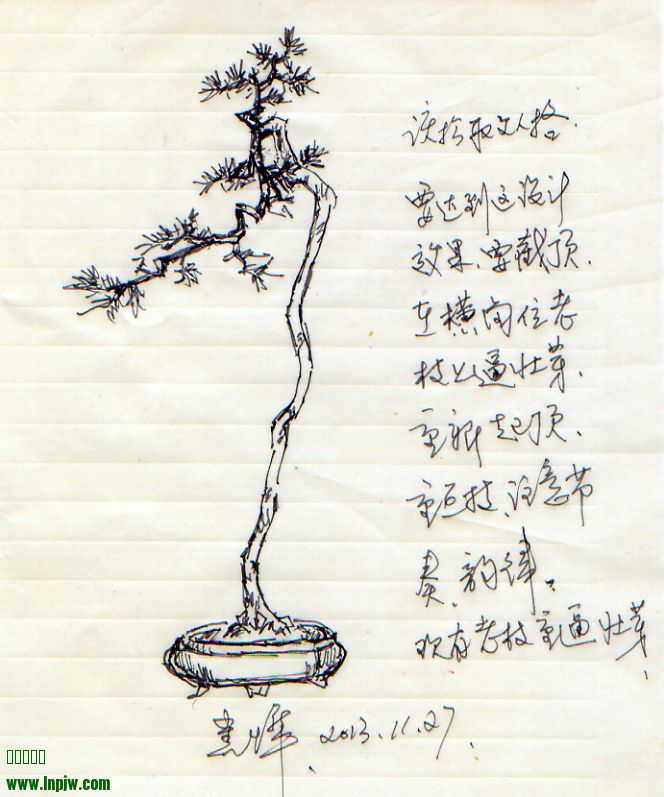 该捨取文人格.
要达到这设计
效果、要截顶.
在横向位老
枝上逼壮芽.
重新起顶、
重巨技、注意节
奏、韵律.
现有老枝重逼壮芽.
2013.11.27.
www.lnpjw.com